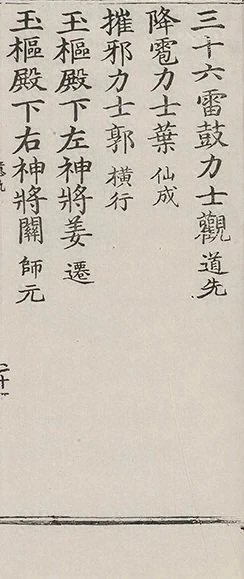 三十六雷鼓力士觀道先
降雹力士葉仙成
摧邪力士郭橫行
玉樞殿下左神將姜遷
玉樞殿下右神將關師元
二十一